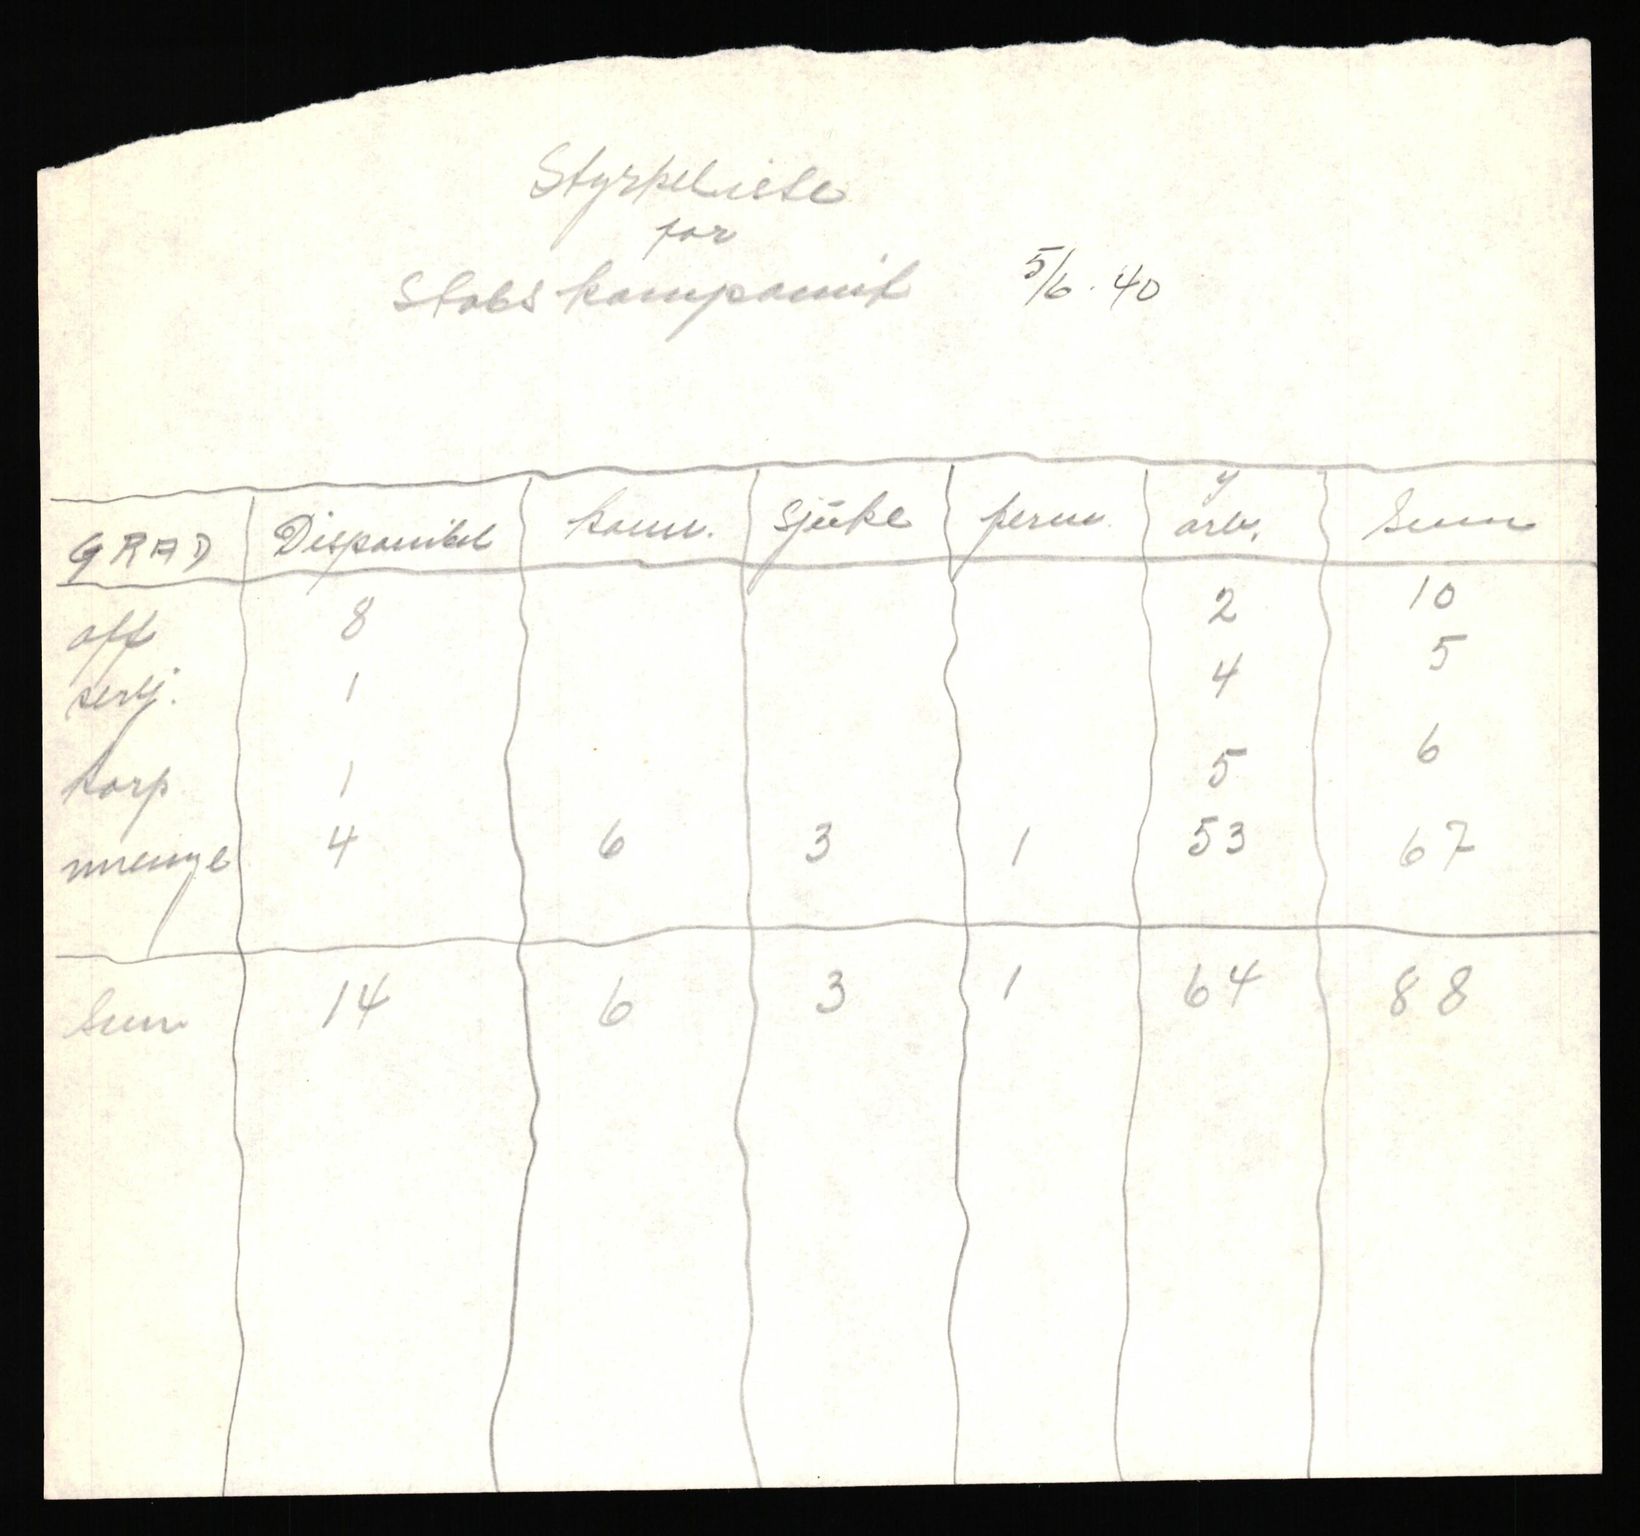 Styrkeliste
for
Stabskompanit 5/6.40
GRAD Disponibel komm. sjuke perm. y arb. Sum
off 8 2 10
serj. 1 4 5
korp 1 5 6
menige 4 6 3 1 53 67
Sum 14 6 3 1 64 88